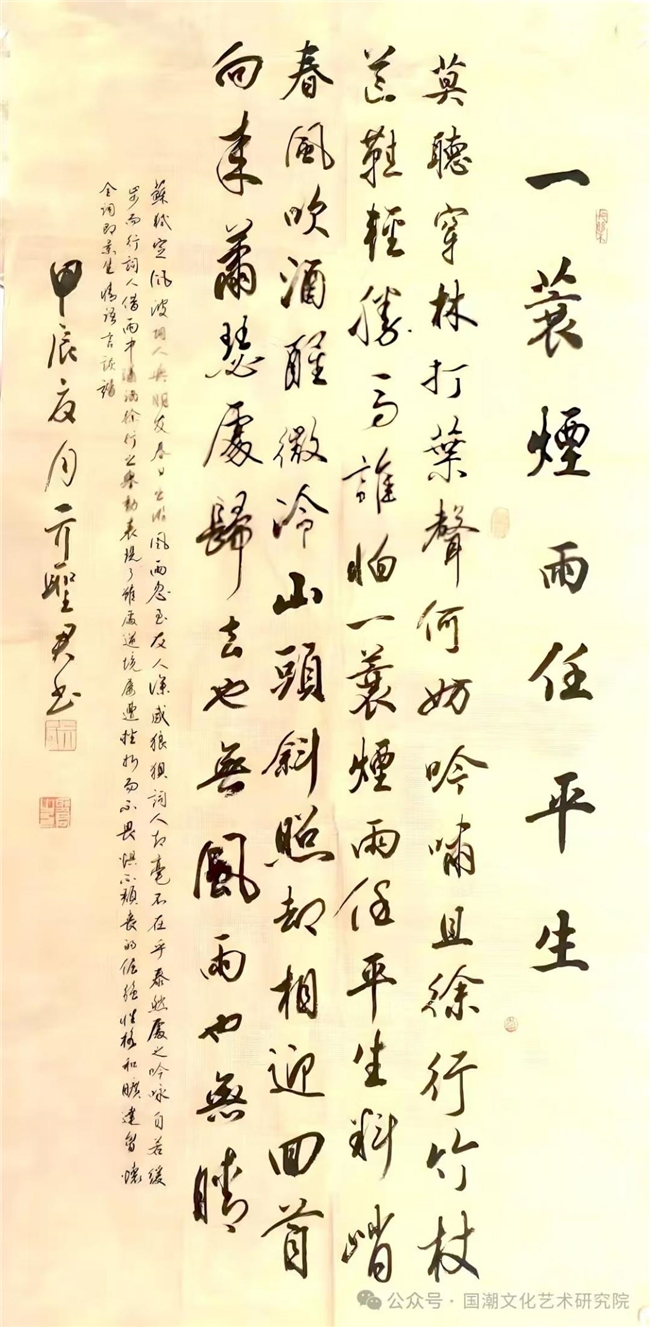 一蓑煙雨任平生
莫聽穿林打葉聲何妨吟嘯且徐行竹杖
芒鞋輕勝馬誰怕一蓑煙雨任平生料峭
春風吹酒醒微冷山頭斜照却相迎回首
向来蕭瑟處歸去也無風雨也無晴
蘇軾定風波詞人與朋友春日出游風雨忽至友人深感狼狽詞人却毫不在乎泰然處之吟咏自若緩
步而行詞人借雨中瀟洒徐行之舉動表現了雖處逆境屢遭挫折而不畏懼不頹喪的倔强性格和曠達胸懷
全詞即景生情語言詼諧
甲辰夏月亓聖君书
公众号·国潮文化艺术研究院